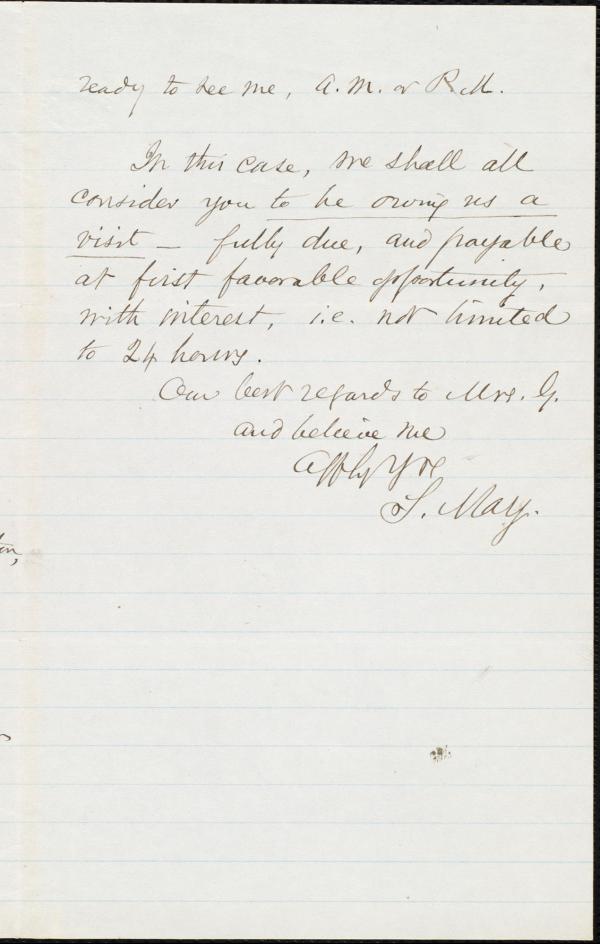 ready to see me, A.M. or P.M.
In this case, we shall all
consider you to be owing us a
visit — fully due, and payable
at first favorable opportunity,
with interest, i.e. not limited
to 24 hours.
Our best regards to Mrs. G.
and believe me
Affly Yrs
S. May.